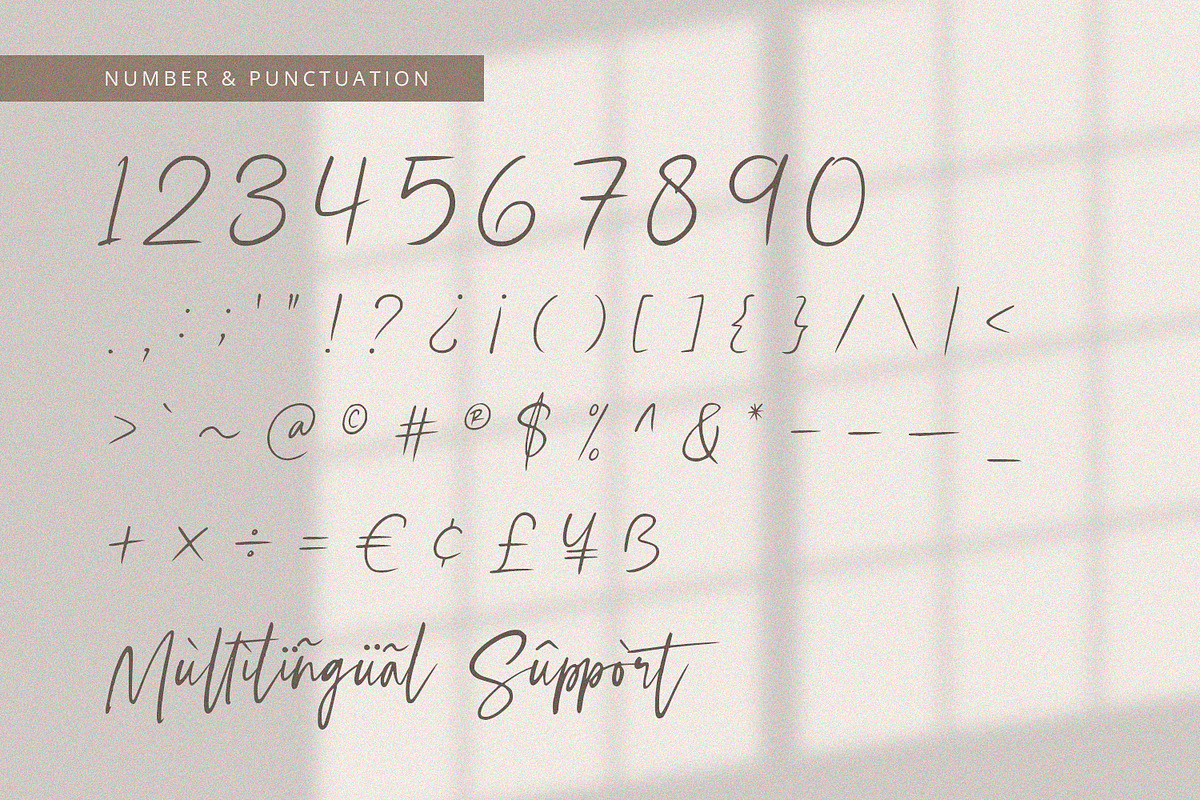 NUMBER & PUNCTUATION
1 2 3 4 5 6 7 8 9 0
. , : ; ' " ! ? ¿ ¡ ( ) [ ] { } / \ | <
> ` ~ @ © # ® $ % ^ & * - – — _
+ × ÷ = € ¢ £ ¥ ß
Mùltìlïñgüãl Sûppòrt